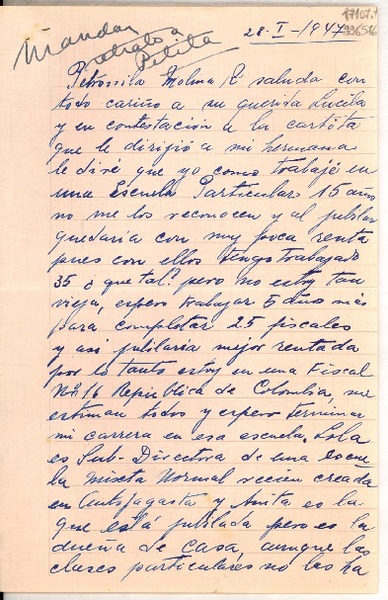 Mandar
retrato a
Petita
28-I-1947
Petronila Molina R. saluda con
todo cariño a su querida Lucila
y en contestación a la cartita
que le dirigió a mi hermana
le diré que yo como trabajé en
una Escuela Particular 15 años
no me los reconocen y al jubilar
quedaría con muy poca renta
pues con ellos tengo trabajado
35 ¿ que tal? pero no estoy tan
vieja, espero trabajar 5 años más
para completar 25 fiscales
y así jubilaria mejor rentada
por lo tanto estoy en una Fiscal
Nº 16 Republica de Colombia, me
estiman todos y espero terminar
mi carrera en esa escuela, Lola
es Sub-Directora de una Escue
la Mixta Normal recien creada
en Antofagasta y Anita es la
que está jubilada pero es la
dueña de casa, aunque las
clases particulares no las ha